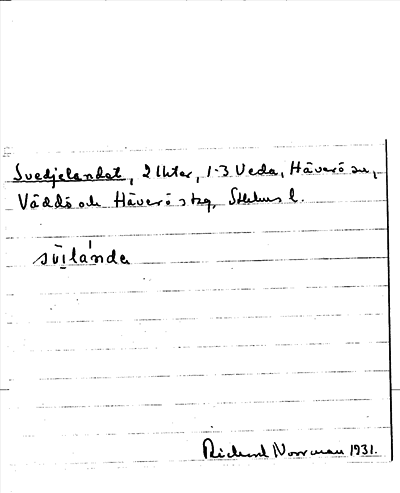 Svedjelandet, 2 Utter, 1-3 Veda, Häverö sn,
Väddö och Häverö skg, Sthlms l.
svi̱lánda
Rickard Norrman 1931.